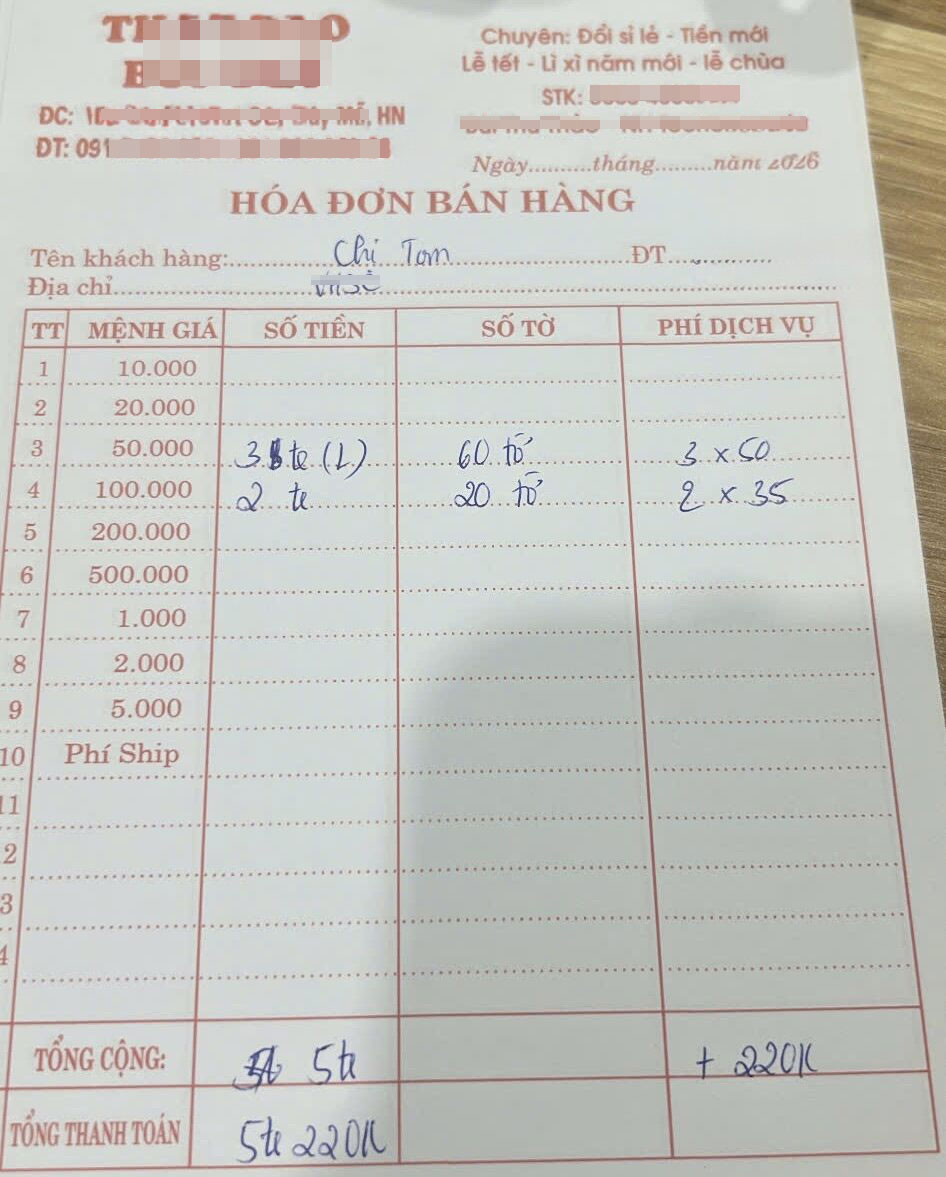 Chuyên: Đổi sỉ lẻ - Tiền mới
Lễ tết - Lì xì năm mới - lễ chùa
STK:
ĐC: HN
ĐT: 091
Ngày..........tháng.........năm 2026
HÓA ĐƠN BÁN HÀNG
Tên khách hàng: Chị Tom ĐT
Địa chỉ
TT MỆNH GIÁ SỐ TIỀN SỐ TỜ PHÍ DỊCH VỤ
1 10.000
2 20.000
3 50.000 3 te (L) 60 tờ 3 x 50
4 100.000 2 te 20 tờ 2 x 35
5 200.000
6 500.000
7 1.000
8 2.000
9 5.000
10 Phí Ship
11
2
3
4
TỔNG CỘNG: 5te + 220K
TỔNG THANH TOÁN 5te 220K